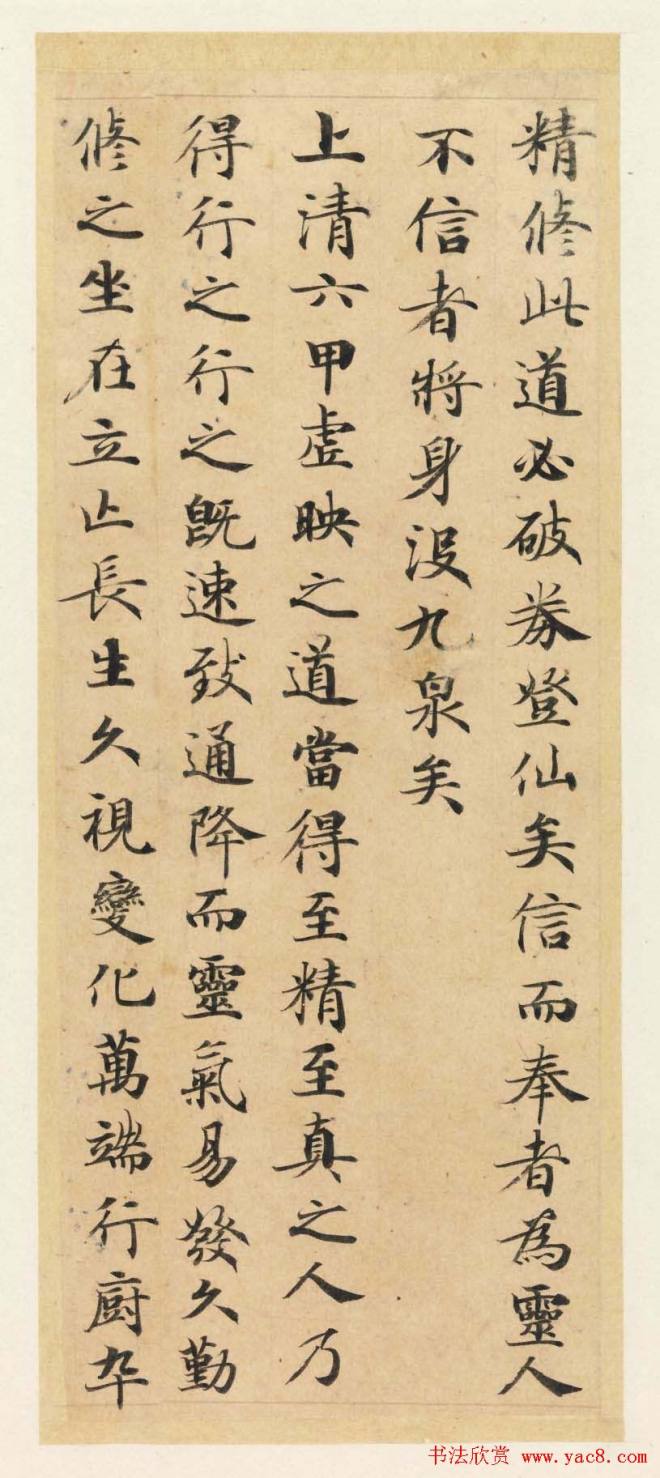 精脩此道必破券登仙矣信而奉者為靈人
不信者將身没九泉矣
上清六甲虚映之道當得至精至真之人乃
得行之行之既速致通降而靈氣易發久勤
脩之坐在立亡長生久視變化萬端行廚卒
书法欣赏 www.yac8.com